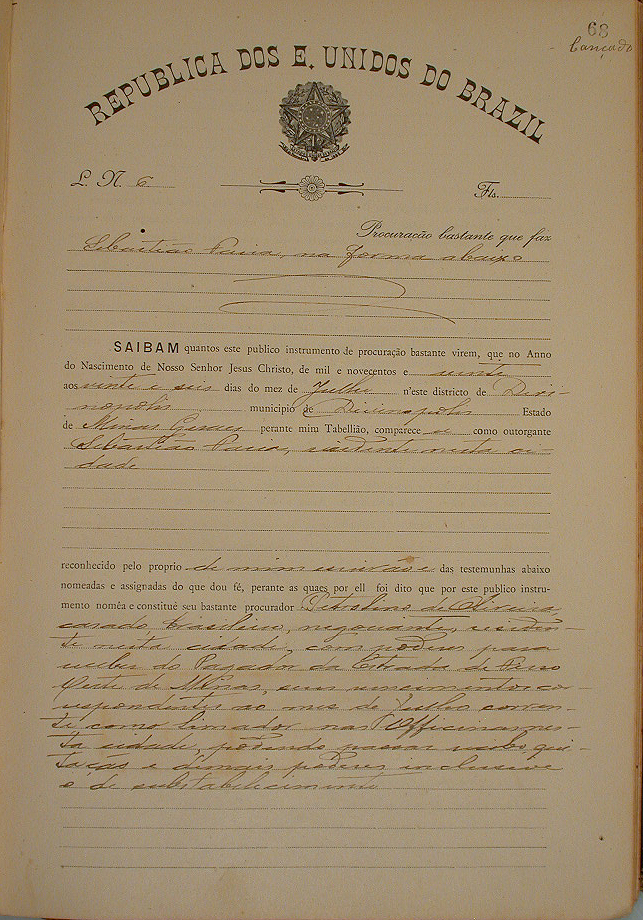 68
Lançado
REPUBLICA DOS E. UNIDOS DO BRAZIL
L. N. 6
Fls.
Procuração bastante que faz
Sebastião Faria, na forma abaixo
SAIBAM quantos este publico instrumento de procuração bastante virem, que no Anno
do Nascimento de Nosso Senhor Jesus Christo, de mil e novecentos e vinte
aos vinte e seis dias do mez de Julho n'este districto de Divi-
nopolis municipio de Divinopolis Estado
de Minas Geraes perante mim Tabellião, comparece u como outorgante
Sebastião Faria, residente nesta ci-
dade
reconhecido pelo proprio de mim escrivão e das testemunhas abaixo
nomeadas e assignadas do que dou fé, perante as quaes por ell foi dito que por este publico instru-
mento nomêa e constitue seu bastante procurador de Oliveira
casado brasileiro, negociante, residen-
te nesta cidade, com poderes para
receber do Pagador da Estrada de Ferro
Oeste de Minas, seus vencimentos co-
rrespondentes ao mes de Julho corren-
te como limador nas Officinas nes-
ta cidade, podendo passar recibo, qui-
tação e demais poderes inclusive
o de substabelecimento